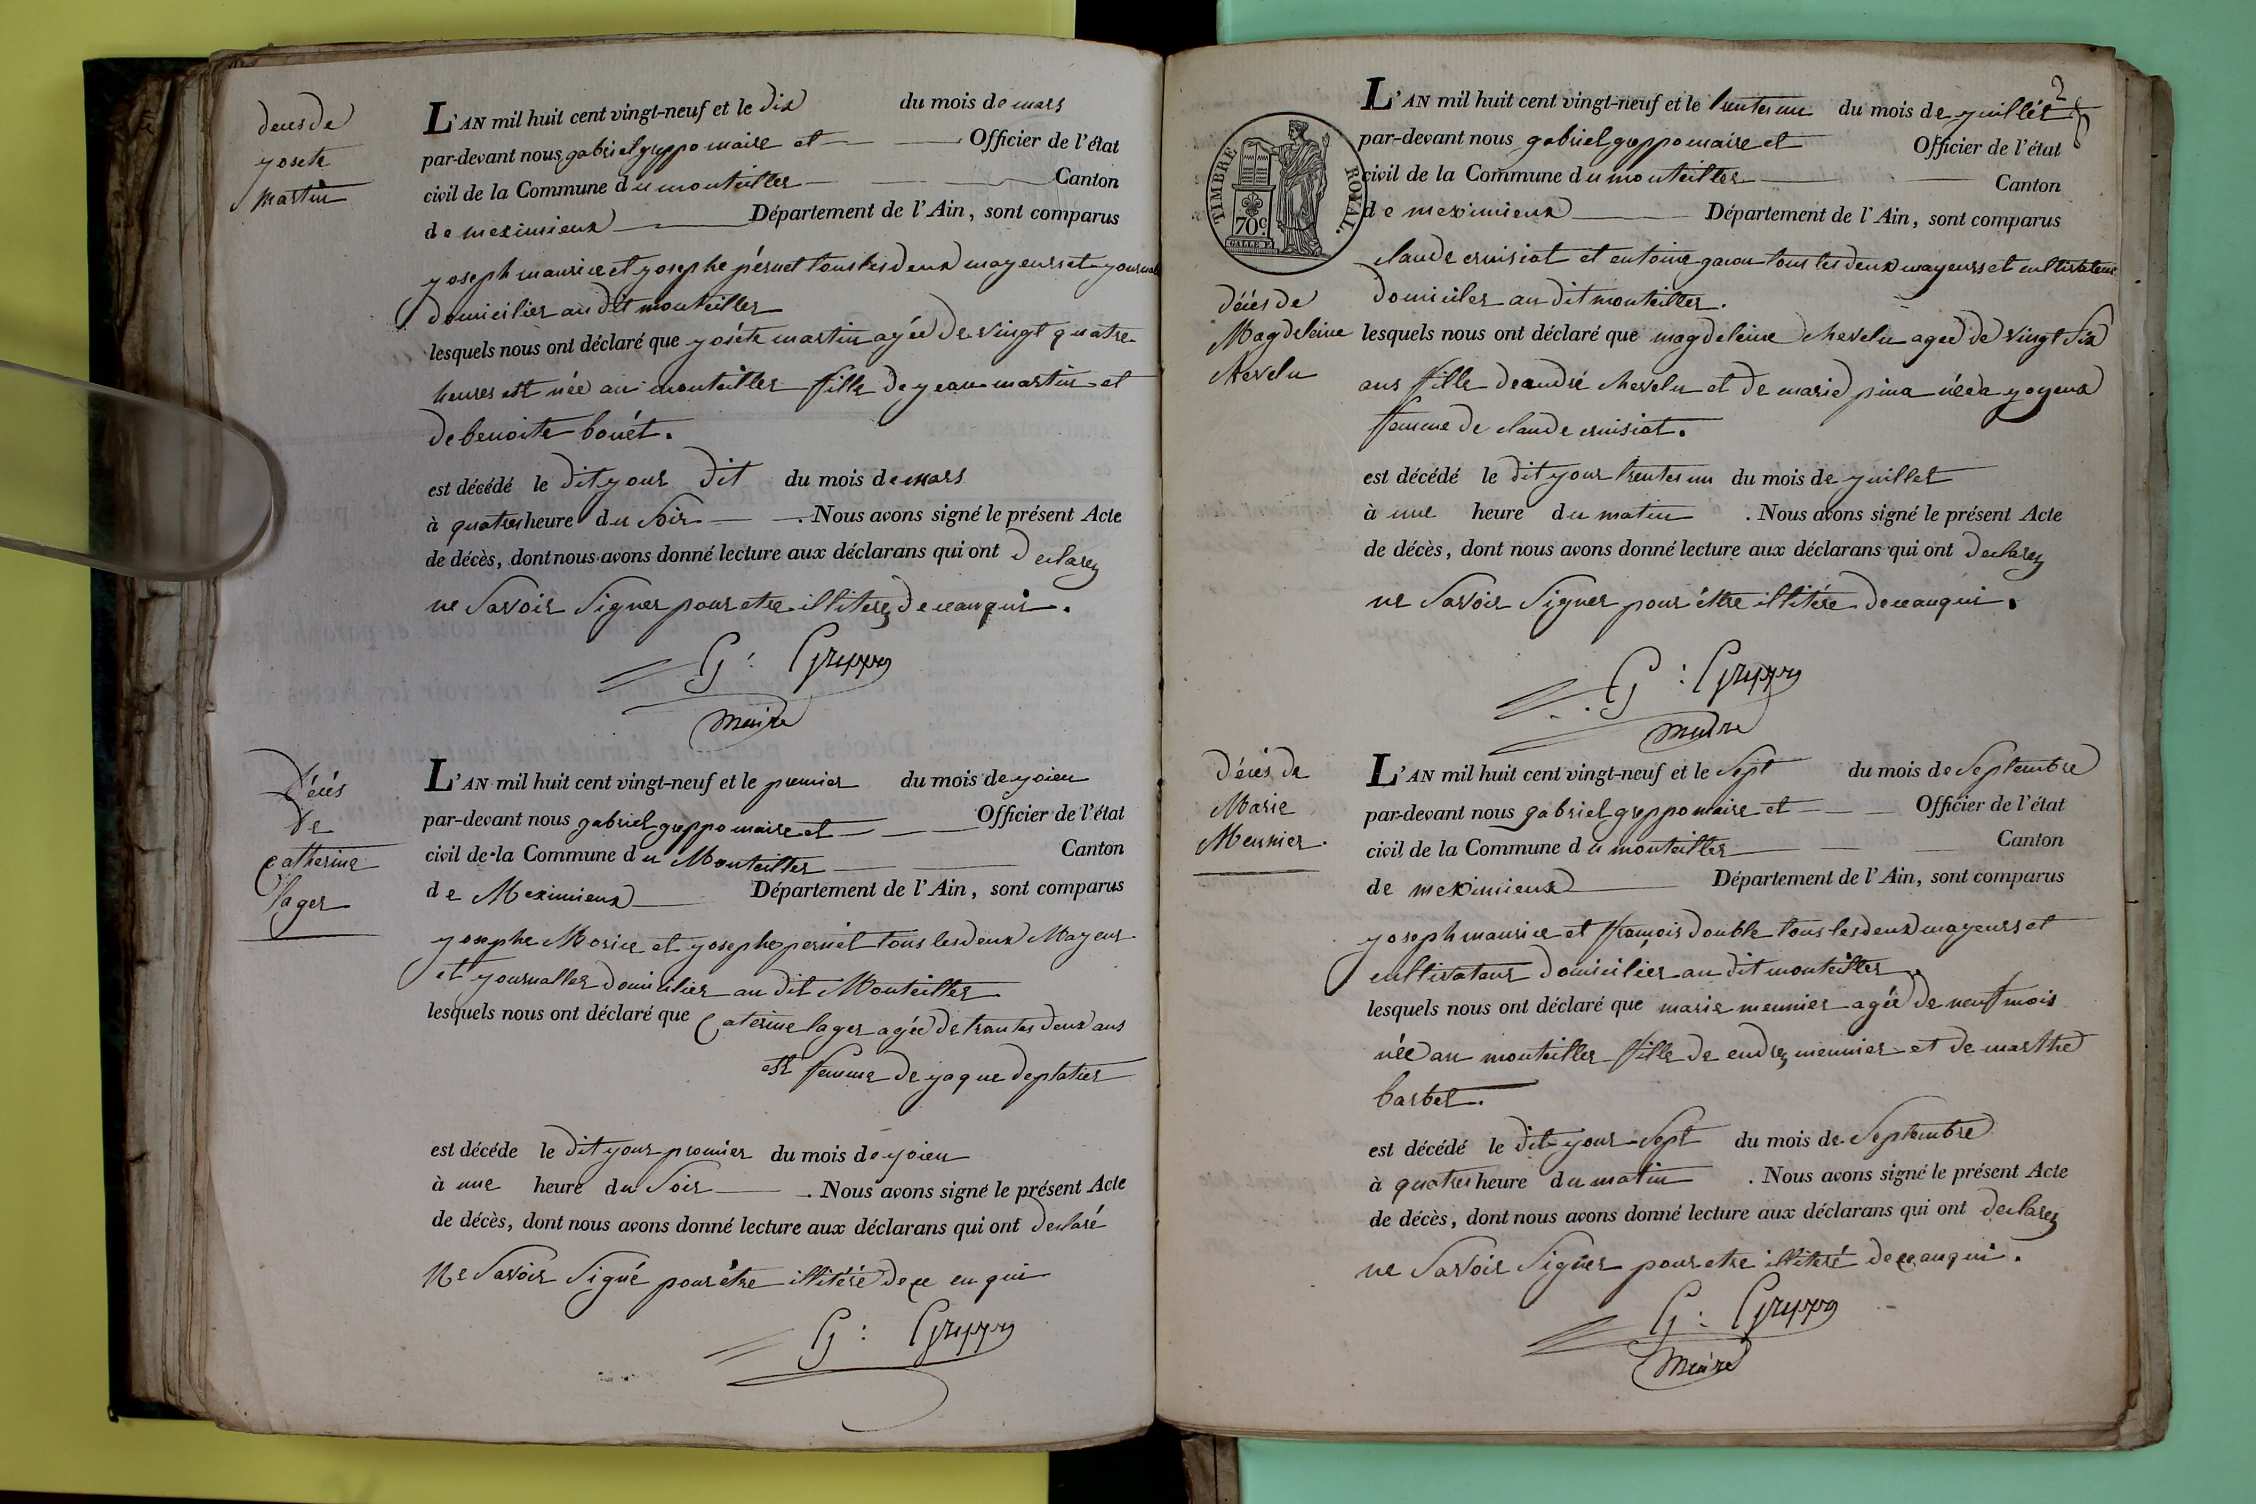 deces de
yosete
martin
L'AN mil huit cent vingt-neuf et le dix du mois de mars
par-devant nous gabriel greppo maire et Officier de l'état
civil de la Commune du monteiller Canton
de meximieux Département de l'Ain, sont comparus
yoseph maurice et yosephe pérnet tous les deux mayeurs et
domicilier au dit monteiller
lesquels nous ont déclaré que yoséte martin agée de vingt quatre
heures est née au monteiller fille de yean martin et
de benoite bouét.
est décédé le dit your dit du mois de mars
à quatres heure du soir . Nous avons signé le présent Acte
de décès, dont nous avons donné lecture aux déclarans qui ont declarez
ne savoir signer pour etre illiterez de ceauquis.
G: Greppo
maire
Décés
de
catherine
lager
L'AN mil huit cent vingt-neuf et le premier du mois de yoien
par-devant nous gabriel greppo maire et Officier de l'état
civil de la Commune du Monteiller Canton
de Meximieux Département de l'Ain, sont comparus
yosephe Morice et yosephe pernet tous les deux Mayeur
et yournaller domicilier au dit Monteiller
lesquels nous ont déclaré que Caterine lager agée de trantes deux ans
est femme de yaque deplatier
est décéde le dit your premier du mois de yoien
à une heure du soir . Nous avons signé le présent Acte
de décès, dont nous avons donné lecture aux déclarans qui ont declaré
Ne savoir signé pour être illitéré de ce enqui
G: Greppo
2
L'AN mil huit cent vingt-neuf et le trentes un du mois de yuillét
par-devant nous gabriel greppo maire et Officier de l'état
civil de la Commune du monteiller Canton
de meximieux Département de l'Ain, sont comparus
TIMBRE ROYAL.
70c.
claude cruisiat et entoine gacon tous les deux mayeurs et cultivateur
domiciler au dit monteiller.
décés de
Magdeleine
chevelu
lesquels nous ont déclaré que magdeleine chevelu agée de vingt six
ans fille de andré chevelu et de marie pina née a yoyeux
femme de claude cruisiat.
est décédé le dit your trentes un du mois de yuillet
à une heure du matin . Nous avons signé le présent Acte
de décès, dont nous avons donné lecture aux déclarans qui ont declarez
ne savoir signer pour être illitére de ceauqui.
G: Greppo
maire
décés de
Marie
Meunier.
L'AN mil huit cent vingt-neuf et le sept du mois de septembre
par-devant nous gabriel greppo maire et Officier de l'état
civil de la Commune du monteiller Canton
de meximieux Département de l'Ain, sont comparus
yoseph maurice et francois double tous les deux mayeurs et
cultivateur domicilier au dit monteiller.
lesquels nous ont déclaré que marie meunier agée de neuf mois
née au monteiller fille de endrez meunier et de marthe
barbet.
est décédé le dit your sept du mois de septembre
à quatres heure du matin . Nous avons signé le présent Acte
de décès, dont nous avons donné lecture aux déclarans qui ont declarez
ne savoir signer pour etre illiteré de ceauqui.
G: Greppo
maire